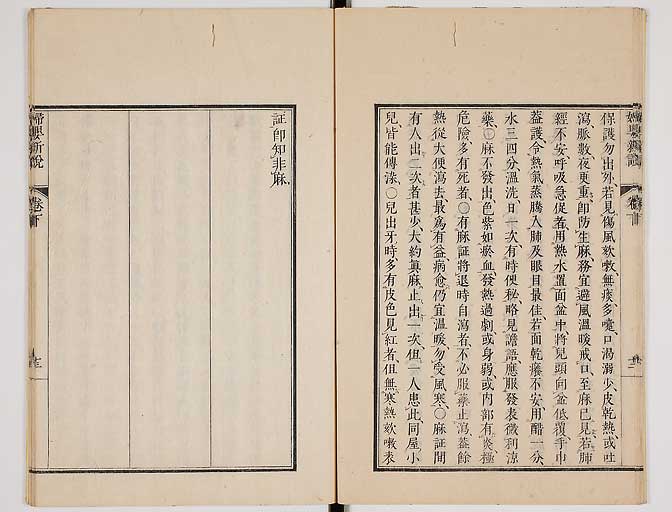 保護勿出外若見傷風欬嗽無痰多嚏口渴溺少皮乾熱或吐
瀉脈數夜更重卽防生麻務宜避風溫暖戒口至麻已見若肺
經不安呼吸急促者用熱水置面盆中將兒頭向盆低覆手巾
蓋護令熱氣蒸騰入肺及眼目最佳若面乾癢不安用醋一分
水三四分溫洗日一次有時便秘略見譫語應服發表微利涼
藥○麻不發出色紫如瘀血發熱過劇或身弱或內部有炎極
危險多有死者○有麻証將退時自瀉者不必服藥止瀉蓋餘
熱從大便瀉去最爲有益病愈仍宜溫暖勿受風寒○麻証間
有人出二次者甚少大約眞麻止出一次但一人患此同屋小
兒皆能傳染○兒出牙時多有皮色見紅者但無寒熱欬嗽表
証卽知非麻
婦嬰新說